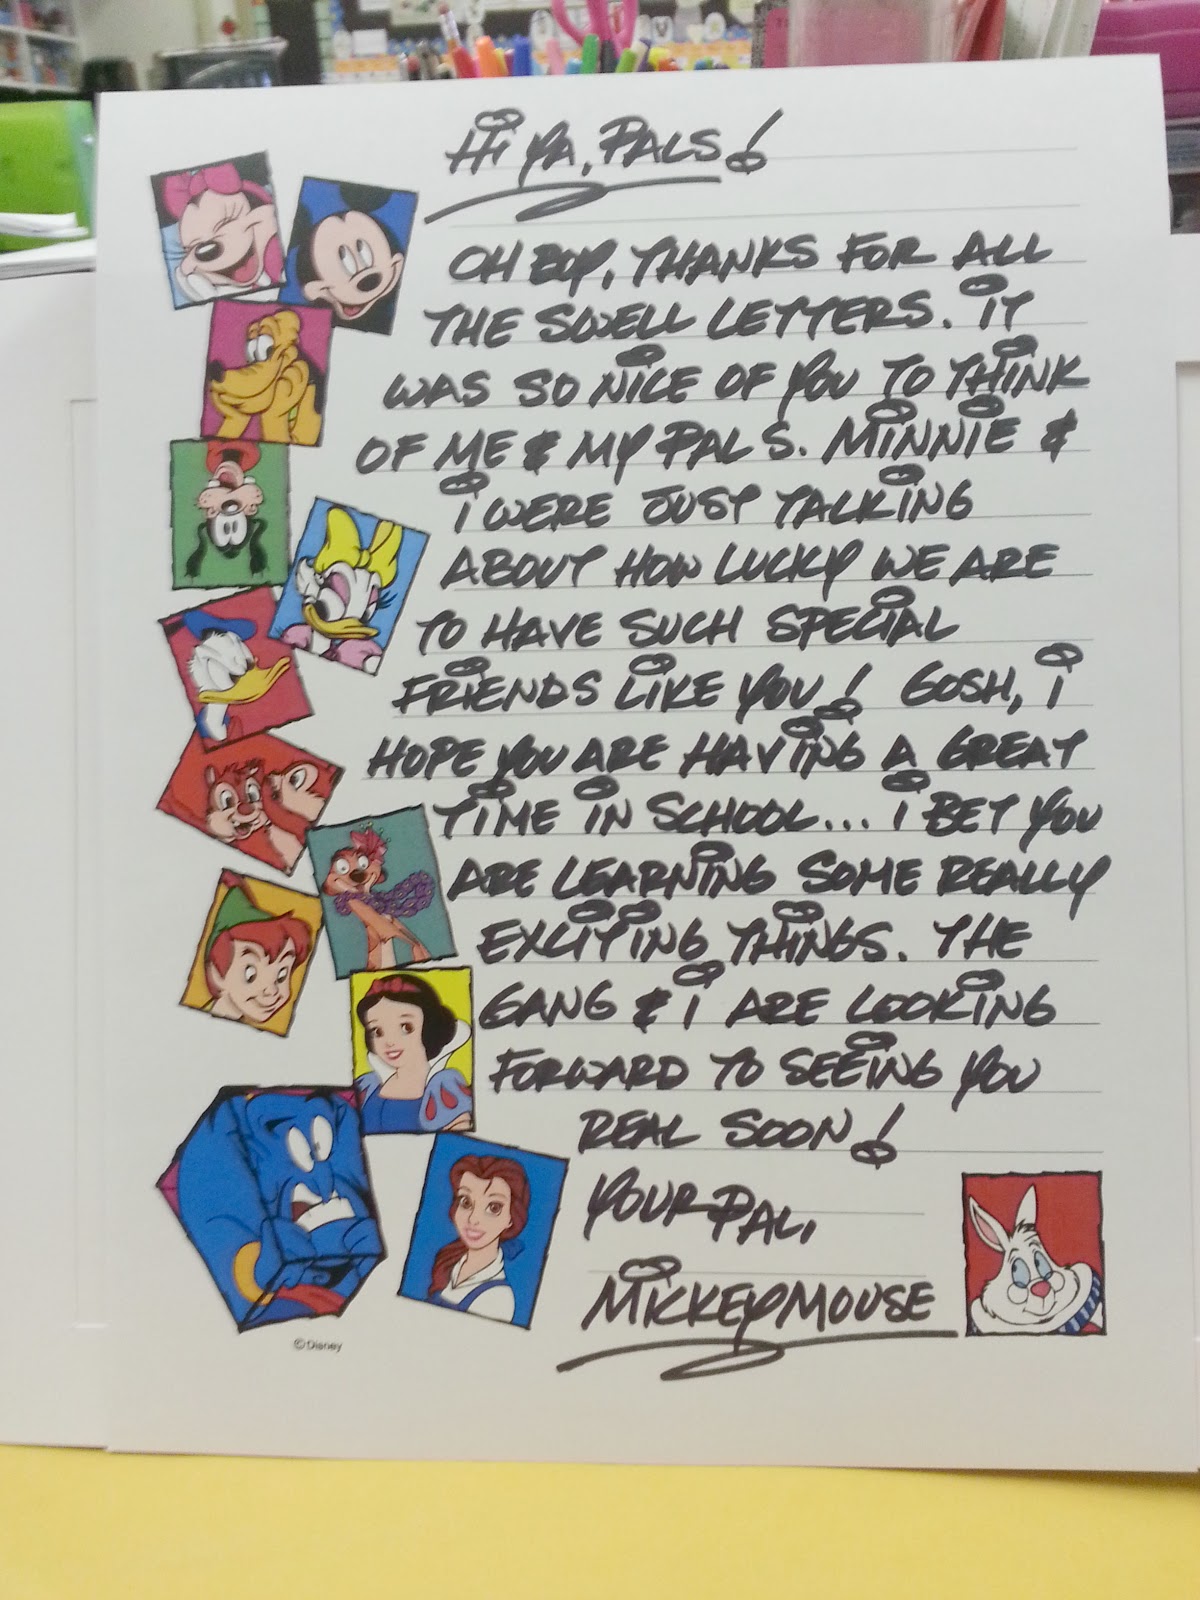 Hi YA, PALS!
OH BOY, THANKS FOR ALL
THE SWELL LETTERS. iT
WAS SO NiCE OF YOU TO THiNK
OF ME & MY PALS. MiNNiE &
i WERE JUST TALKiNG
ABOUT HOW LUCKY WE ARE
TO HAVE SUCH SPECiAL
FRiENDS LiKE YOU! GOSH, i
HOPE YOU ARE HAViNG A GREAT
TiME iN SCHOOL... i BET YOU
ARE LEARNiNG SOME REALLY
EXCiTiNG THiNGS. THE
GANG & i ARE LOOKiNG
FORWARD TO SEEiNG YOU
REAL SOON!
YOUR PAL,
MiCKEY MOUSE
©Disney